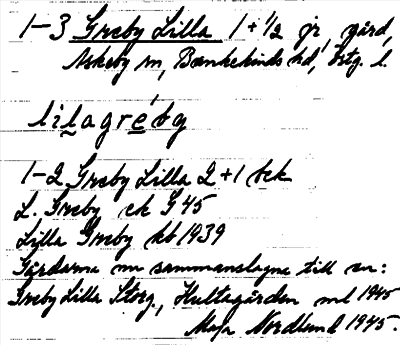 1-3 Greby Lilla 1 + 1/2 jr, gård,
Askeby sn, Bankekinds hd, Östg. l.
lìlagré̀by
1-2 Greby Lilla 2+1 bck
L. Greby ek G 45
Lilla Greby kb 1939
Gårdarna nu sammanslagna till en:
Greby Lilla Storg., Hultagården ml 1945
Maja Nordlund 1945.